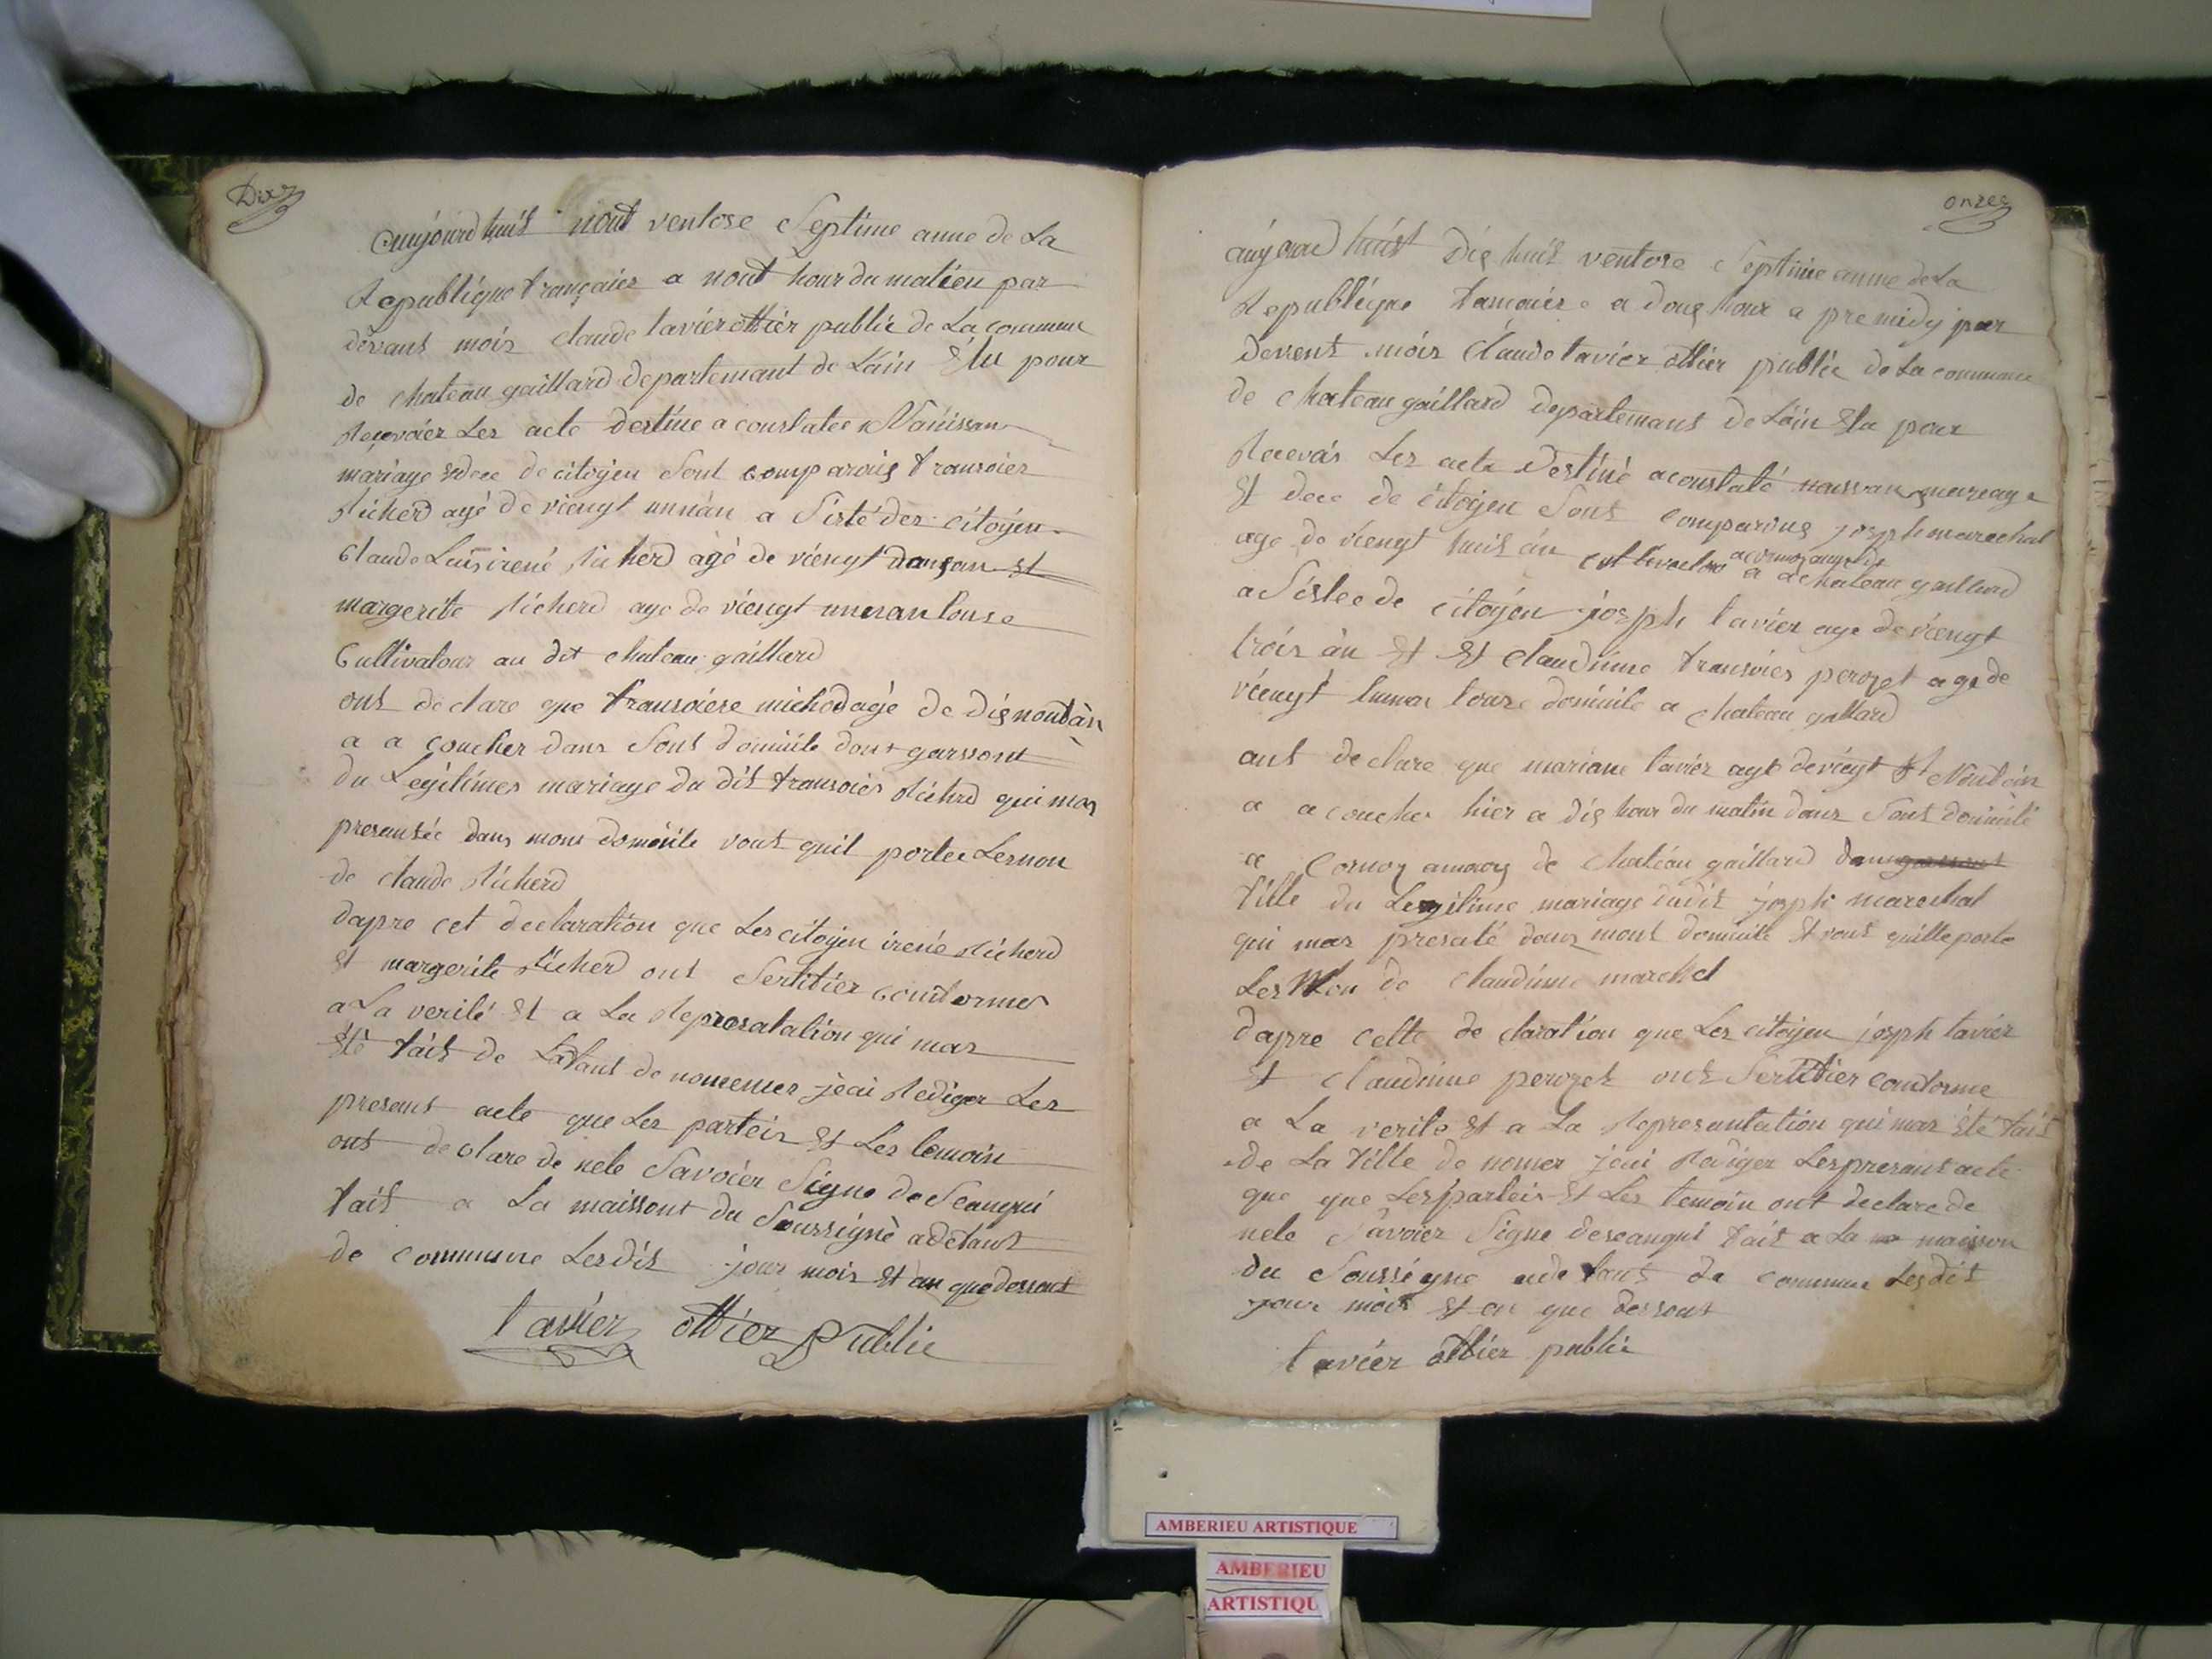 Dix
aujourd huit nout ventose Septime anne de La
Republique françaies a nout hour du matien par
devant mois claude favier offier public de La commune
de chateau gaillard departemant de Lain Elu pour
Reçevoier Les acte destine a constatee Naissan
mariage et dece de citoyen sont comparois fransoies
Richerd agé de viengt unnan a Sisté des citoyen
Claude Luis irené Richerd agé de viengt
margerite Richerd age de viengt unnan touse
Cultivatour au dit chateau gaillard
ont de clare que fransoiese michod agé de dis nout àn
a a coucher dans Sont domicile dont garssont
du Legitimes mariage du dit fransoies Richrd qui mas
presentée dans mont domicile vout quil portee Lesnon
de claude Richerd
dapre cet declaration que Les citoyen irené Richerd
et margerite Richerd ont Sertifier conformes
a La verité et a La Represatation qui mas
été fait de Lafant de nomemer jeai Rediger Les
presant acte que Les parteis et Les temoin
ont de clare de nele Savoier Signe de Seanqui
fait a La maissont du Soussigné a defaut
de commune Lesdit jour mois et an que dessout
favier offier Public
onzee
aujourd huist Dis huit ventose Septime anne de La
Republique a dous hour a premidy par
devent mois Claude favier offier publie de La commune
de chateau gaillard departemant de Lain Elu pour
Recevoir Les acte Destiné a constaté naissan mareage
et dece de citoyen Sont comparous joseph marechal
age de viengt huit àn cultivaetour a cormoz annexe de
a chateau gaillard
a Sistee de citoyen joseph favier age de viengt
trois àn et et claudinne fransoies perozet age de
viengt touse domicile a chateau gallard
ont declare que mariane favier agé de viegt et Noutàn
a a coucher hier a dis hour du matin dans Sont domicile
a Cormoz annaxs de Chateau gaillard
fille du Legitime mariage dudit joseph marechal
qui mas presaté dans mont domicile et vout quille porte
Les Non de claudinne marechel
dapre cette de claration que Les citoyen joseph favier
et Claudinne perozet ont Sertifier conforme
a La verite et a La Representation qui mas été fait
de La fille de nomer jeai Rediger Les presant acte
que que Les parteis et Les temoin ont declare de
nele Savoier Signe deseanqui fait a La maison
du Soussigne a de faut de commune Lesdit
jour mois et an que dessout
favier offier publie
AMBERIEU ARTISTIQUE
AMBERIEU
ARTISTIQU